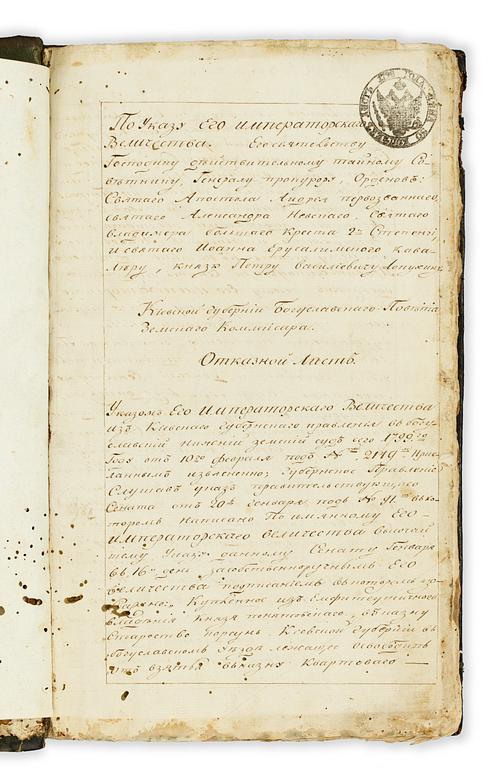 По Указу Его императорскаго
Величества. Его святельству
Господину действительному тайному Со-
вѣтнику, Генералу прокурору, Орденовъ:
Святаго Апостола Андрея первозваннаго,
святаго Александра Невскаго, Святаго
владимера большаго креста 2й Степени,
и святаго Иоанна Ерусалимскаго Кава-
леру, князю Петру василиевичу Лопухину
Киевской губернии Богуславскаго Повѣта
Земскаго Коммисара.
Отказной Листъ.
Указомъ Его Императорскаго Величества
изъ Киевскаго губернскаго правления въ богу-
славский нижний земский судъ сего 1799го
Года отъ 10го февраля подъ № 2119 прис-
ланнымъ изъяснено: Губернское Правление
Слушавъ указъ правительствующаго
Сената отъ 20го Генваря подъ №
торомъ написано По имянному Его
императорскаго величества высочай-
шему Указу данному Сенату Генваря
въ 16й день за собственноручнымъ Его
величества подписаниемъ въ которомъ
изъ Емфитеутическаго
владения Князя понятовскаго, въ казну
Староство Корсунь, Киевской Губернии въ
богуславскомъ уѣзде лежащее освободить
отъ взятья въ казну Квартоваго